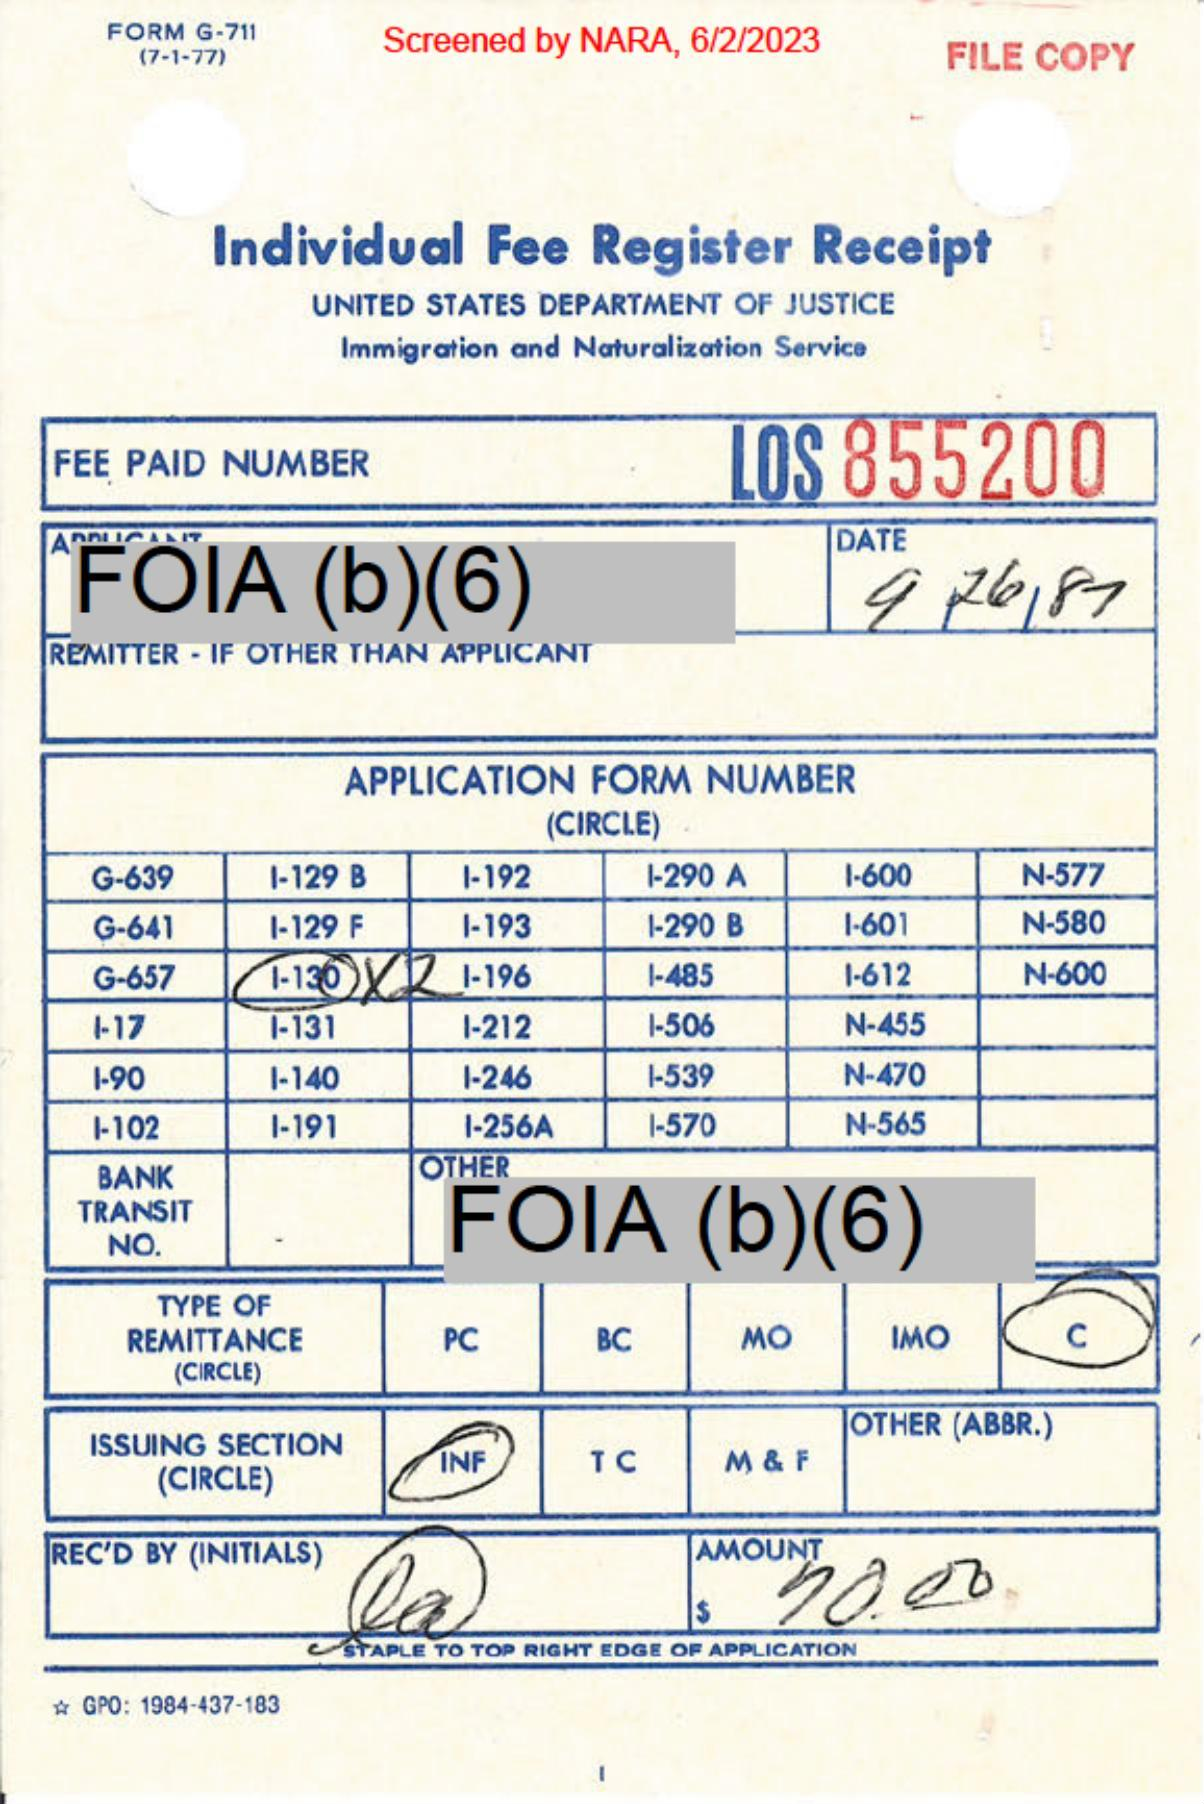 FORM G-711
(7-1-77)
Screened by NARA, 6/2/2023
FILE COPY
Individual Fee Register Receipt
UNITED STATES DEPARTMENT OF JUSTICE
Immigration and Naturalization Service
FEE PAID NUMBER LOS 855200
APPLICANT
FOIA (b)(6)
DATE
9/26/87
REMITTER - IF OTHER THAN APPLICANT
APPLICATION FORM NUMBER
(CIRCLE)
G-639 I-129 B I-192 I-290 A I-600 N-577
G-641 I-129 F I-193 I-290 B I-601 N-580
G-657 I-130 X2 I-196 I-485 I-612 N-600
I-17 I-131 I-212 I-506 N-455
I-90 I-140 I-246 I-539 N-470
I-102 I-191 I-256A I-570 N-565
BANK
TRANSIT
NO.
OTHER
FOIA (b)(6)
TYPE OF
REMITTANCE
(CIRCLE)
PC BC MO IMO C
ISSUING SECTION
(CIRCLE)
INF T C M & F
OTHER (ABBR.)
REC'D BY (INITIALS)
AMOUNT
$ 70.00
STAPLE TO TOP RIGHT EDGE OF APPLICATION
☆ GPO: 1984-437-183
1